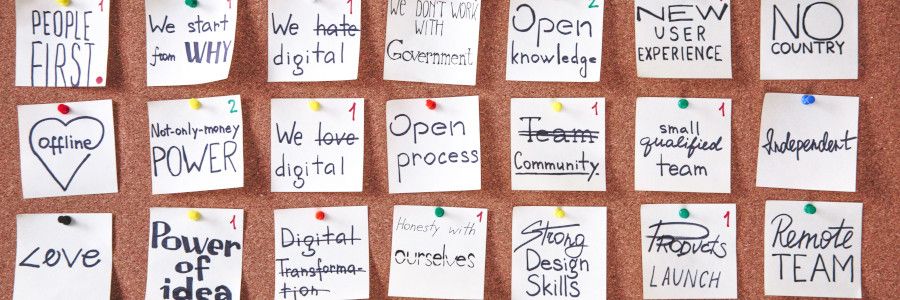 1
PEOPLE
FIRST.
1
We start
from WHY
1
We hate
digital
We DON'T WORK
WITH
Government
2
Open
knowledge
1
NEW
USER
EXPERIENCE
NO
COUNTRY
offline
2
Not-only-money
POWER
1
We love
digital
Open
process
1
Team
Community.
1
small
qualified
team
Independent
Love
1
Power
of
idea
Digital
Transforma-
tion
1
Honesty with
ourselves
Strong
Design
Skills
1
Products
LAUNCH
Remote
TEAM